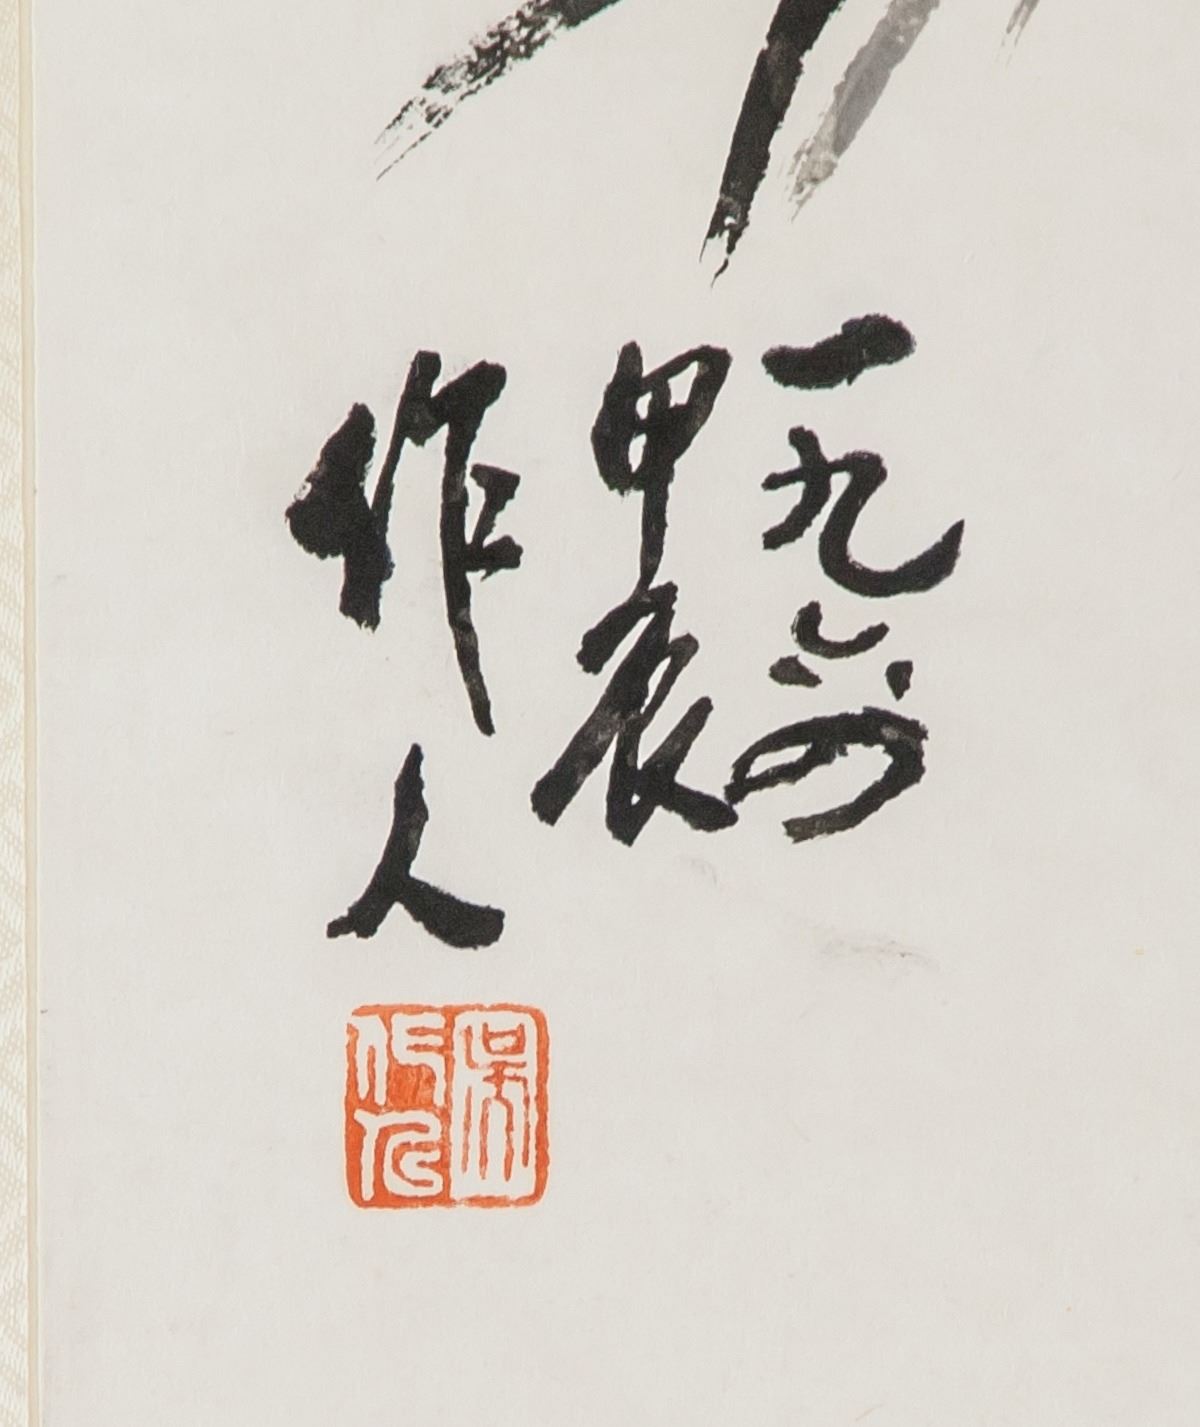 一九六四
甲辰
作人
吴作人